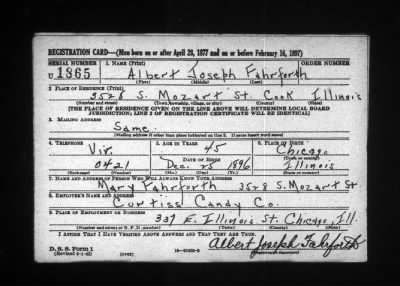 REGISTRATION CARD—(Men born on or after April 28, 1877 and on or before February 16, 1897)
SERIAL NUMBER 1. NAME (Print) ORDER NUMBER
U 1365 Albert Joseph Fahrforth
(First) (Middle) (Last)
2. PLACE OF RESIDENCE (Print)
3528 S. Mozart St. Cook Illinois
(Number and street) (Town, township, village, or city) (County) (State)
[THE PLACE OF RESIDENCE GIVEN ON THE LINE ABOVE WILL DETERMINE LOCAL BOARD
JURISDICTION; LINE 2 OF REGISTRATION CERTIFICATE WILL BE IDENTICAL]
3. MAILING ADDRESS
Same.
[Mailing address if other than place indicated on line 2. If same insert word same]
4. TELEPHONE 5. AGE IN YEARS 6. PLACE OF BIRTH
Vir. 45 Chicago
DATE OF BIRTH (Town or county)
0421 Dec. 25 1896 Illinois
(Exchange) (Number) (Mo.) (Day) (Yr.) (State or country)
7. NAME AND ADDRESS OF PERSON WHO WILL ALWAYS KNOW YOUR ADDRESS
Mary Fahrforth 3528 S. Mozart St
8. EMPLOYER'S NAME AND ADDRESS
Curtiss Candy Co.
9. PLACE OF EMPLOYMENT OR BUSINESS
337 E. Illinois St. Chicago, Ill.
(Number and street or R. F. D. number) (Town) (County) (State)
I AFFIRM THAT I HAVE VERIFIED ABOVE ANSWERS AND THAT THEY ARE TRUE.
D. S. S. Form 1
(Revised 4-1-42) (over) Albert Joseph Fahrforth